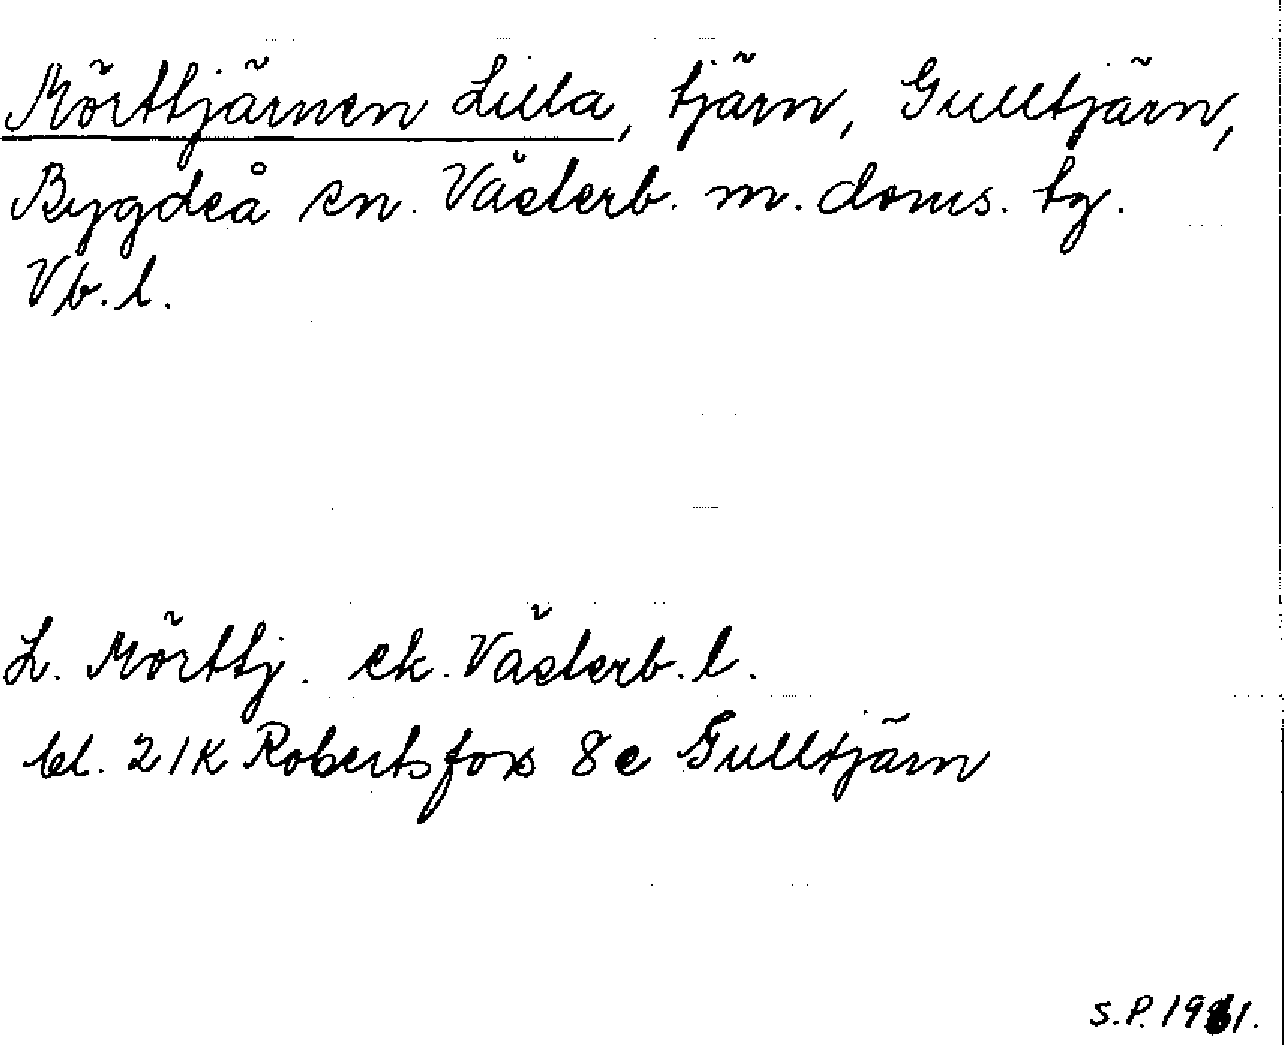 Mörttjärnen Lilla, tjärn, Gulltjärn,
Bygdeå sn. Västerb. m. doms. tg.
Vb. l.
L. Mörttj. ek. Västerb. l.
bl. 21K Robertsfors 8e Gulltjärn
S.P.